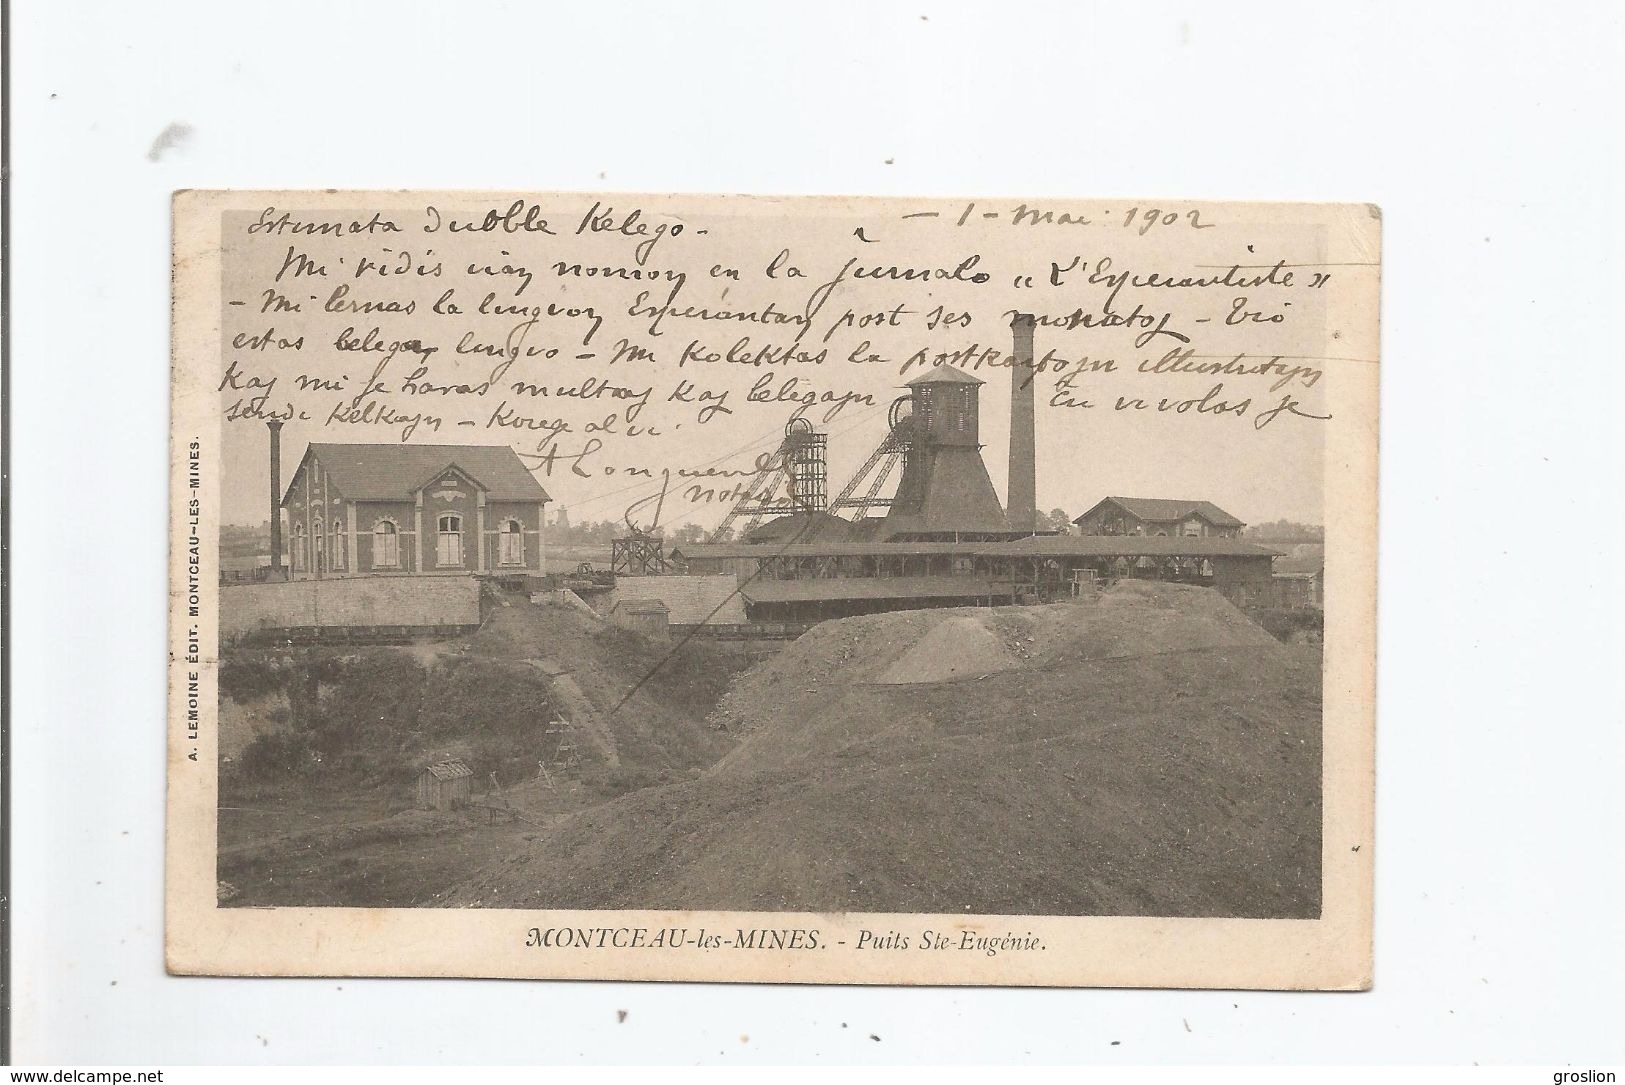 Estimata Dubble Kelego -
- 1 - Mai 1902
Mi vidis vian nomon en la ĵurnalo „L'Esperantiste"
- Mi lernas la lingvon Esperantan post ses monatoj - Tio
estas belega lingvo - Mi kolektas la postkartojn illustritajn
kaj mi je havas multaj kaj belegajn Ĉu vi volas je
sendi kelkajn - Korege al vi.
A Longueville
A. LEMOINE ÉDIT. MONTCEAU-LES-MINES.
MONTCEAU-les-MINES. - Puits Ste-Eugénie.
www.delcampe.net
groslion